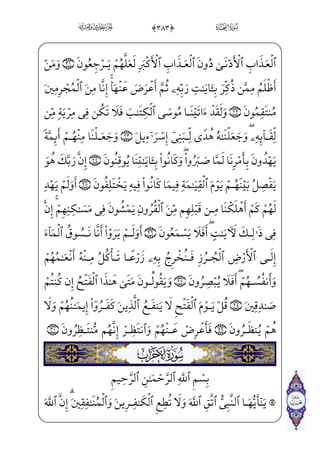 ﴿٣٨٣﴾
ٱلۡعَذَابِ ٱلۡأَدۡنَىٰ دُونَ ٱلۡعَذَابِ ٱلۡأَكۡبَرِ لَعَلَّهُمۡ يَرۡجِعُونَ ۝ وَمَنۡ
أَظۡلَمُ مِمَّن ذُكِّرَ بِـَٔايَٰتِ رَبِّهِۦ ثُمَّ أَعۡرَضَ عَنۡهَآۚ إِنَّا مِنَ ٱلۡمُجۡرِمِينَ
مُنتَقِمُونَ ۝ وَلَقَدۡ ءَاتَيۡنَا مُوسَى ٱلۡكِتَٰبَ فَلَا تَكُن فِي مِرۡيَةٖ مِّن
لِّقَآئِهِۦۖ وَجَعَلۡنَٰهُ هُدٗى لِّبَنِيٓ إِسۡرَٰٓءِيلَ ۝ وَجَعَلۡنَا مِنۡهُمۡ أَئِمَّةٗ
يَهۡدُونَ بِأَمۡرِنَا لَمَّا صَبَرُواْۖ وَكَانُواْ بِـَٔايَٰتِنَا يُوقِنُونَ ۝ إِنَّ رَبَّكَ هُوَ
يَفۡصِلُ بَيۡنَهُمۡ يَوۡمَ ٱلۡقِيَٰمَةِ فِيمَا كَانُواْ فِيهِ يَخۡتَلِفُونَ ۝ أَوَلَمۡ يَهۡدِ
لَهُمۡ كَمۡ أَهۡلَكۡنَا مِن قَبۡلِهِم مِّنَ ٱلۡقُرُونِ يَمۡشُونَ فِي مَسَٰكِنِهِمۡۚ إِنَّ
فِي ذَٰلِكَ لَأٓيَٰتٍۚ أَفَلَا يَسۡمَعُونَ ۝ أَوَلَمۡ يَرَوۡاْ أَنَّا نَسُوقُ ٱلۡمَآءَ
إِلَى ٱلۡأَرۡضِ ٱلۡجُرُزِ فَنُخۡرِجُ بِهِۦ زَرۡعٗا تَأۡكُلُ مِنۡهُ أَنۡعَٰمُهُمۡ
وَأَنفُسُهُمۡۚ أَفَلَا يُبۡصِرُونَ ۝ وَيَقُولُونَ مَتَىٰ هَٰذَا ٱلۡفَتۡحُ إِن كُنتُمۡ
صَٰدِقِينَ ۝ قُلۡ يَوۡمَ ٱلۡفَتۡحِ لَا يَنفَعُ ٱلَّذِينَ كَفَرُوٓاْ إِيمَٰنُهُمۡ وَلَا
هُمۡ يُنظَرُونَ ۝ فَأَعۡرِضۡ عَنۡهُمۡ وَٱنتَظِرۡ إِنَّهُم مُّنتَظِرُونَ ۝
سُورَةُ الأَحۡزَابِ
بِسۡمِ ٱللَّهِ ٱلرَّحۡمَٰنِ ٱلرَّحِيمِ
يَٰٓأَيُّهَا ٱلنَّبِيُّ ٱتَّقِ ٱللَّهَ وَلَا تُطِعِ ٱلۡكَٰفِرِينَ وَٱلۡمُنَٰفِقِينَۚ إِنَّ ٱللَّهَ